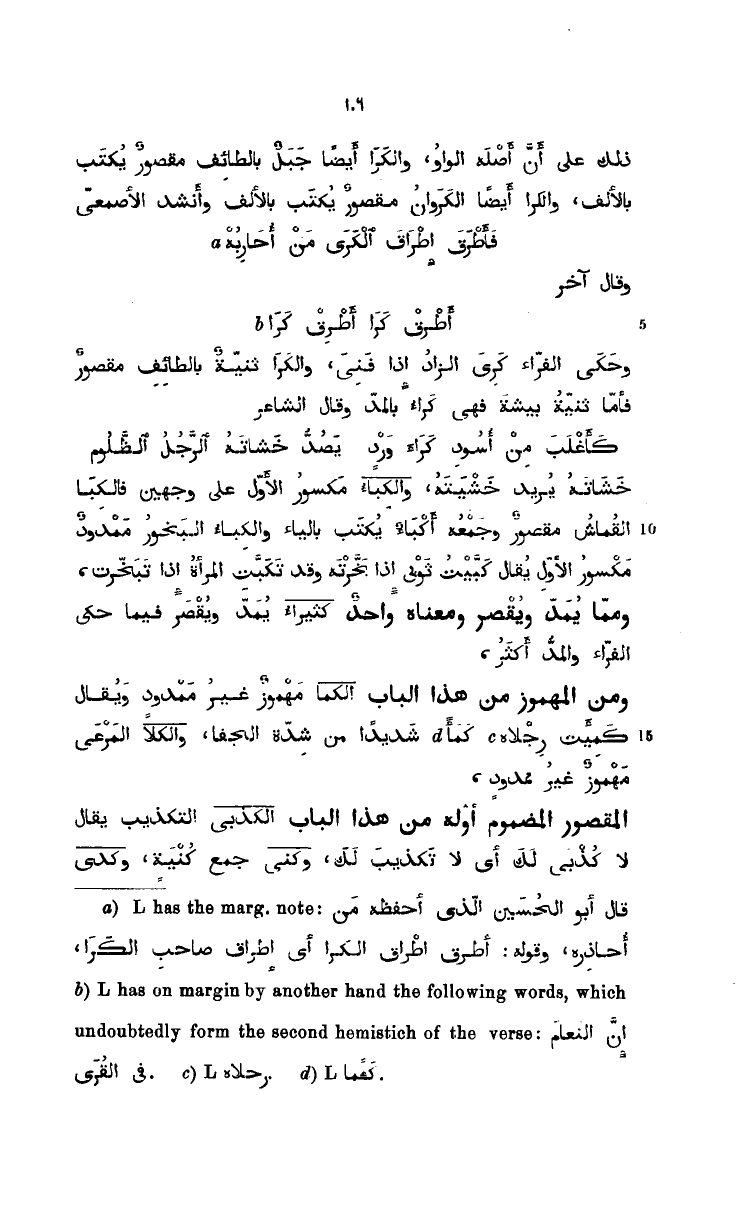 ١٠٦
ذلك على أَنَّ أَصْلَه الواوُ، والكَرَا أَيضًا جَبَلٌ بالطائف مقصورٌ يُكتَب
بالأَلف، والكرا أَيضًا الكَرَوانُ مقصورٌ يُكتَب بالأَلف وأَنشد الأصمعىّ
فَأَطْرَقَ إِطْرَاقَ ٱلْكَرَى مَنْ أُحَارِبُهْ a
وقال آخر
5 أَطْرِقْ كَرَا أَطْرِقْ كَرَا b
وحَكَى الفرّاء كَرِىَ الزادُ اذا فَنِىَ، والكَرَا ثَنِيّةٌ بالطائف مقصورٌ
فأَمّا ثَنِيّةُ بِيشةَ فهى كَراء بالمدّ وقال الشاعر
كَأَغْلَبَ مِنْ أُسُودِ كَرَاء وَرْدٍ يَصُدُّ خَشَاتَهُ ٱلرَّجُلُ ٱلظَّلُومِ
خَشَاتَهُ يُرِيد خَشْيَتَهُ، والكِبَاء مكسورُ الأَوّل على وجهين فالكبَا
10 القُماشُ مقصورٌ وجَمْعُه أَكْبَاء يُكتَب بالياء والكباء البَخورُ مَمْدودٌ
مَكْسورُ الأَوّل يُقال كَبَّيْتُ ثَوْبى اذا بَخَّرْتَه وقد تَكَبَّتِ المرأةُ اذا تَبَخّرت ،
ومِمّا يُمَدّ ويُقْصر ومعناه واحدٌ كثيراء يُمَدّ ويُقْصَر فيما حكى
الفرّاء والمدُّ أَكثَرُ ،
ومن المهموز من هذا الباب الكَمَا مَهْموزٌ غيرُ مَمْدود وَيُقال
15 كَمِئَت رِجْلاه c كَمَأً d شديدًا من شدّة الحفا، والكَلَأ المَرْعَى
مَهْموزٌ غيرُ ممدود ،
المقصور المضموم أَوّله من هذا الباب الكُذْبَى التكذيب يقال
لا كُذْبى لَكَ أى لا تكذيبَ لَكَ، وكُنى جمع كُنْيَة، وكُدَى
a) L has the marg. note: قال أَبو الحُسَين الّذى أحفظه مَن
أُحاذره، وقوله: أطرق اطراق الكرا أى اطراق صاحب الكَرَا،
b) L has on margin by another hand the following words, which
undoubtedly form the second hemistich of the verse: إنَّ النعامَ
فى القُرَى. c) L رحلاه. d) L كَمَّا.